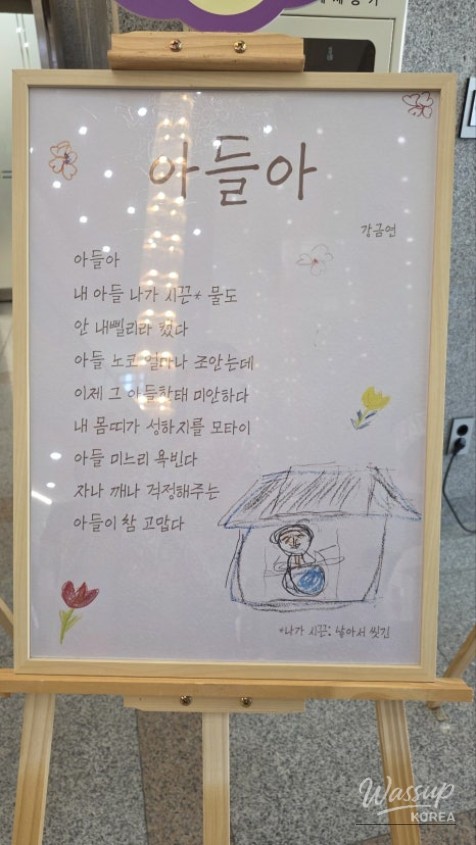 아들아
강금연
아들아
내 아들 나가 시끈* 물도
안 내삐리라 켔다
아들 노코 얼마나 조안는데
이제 그 아들한태 미안하다
내 몸띠가 성하지를 모타이
아들 미느리 욕빈다
자나 깨나 걱정해주는
아들이 참 고맙다
*나가 시끈: 낳아서 씻긴
Wassup
KOREA